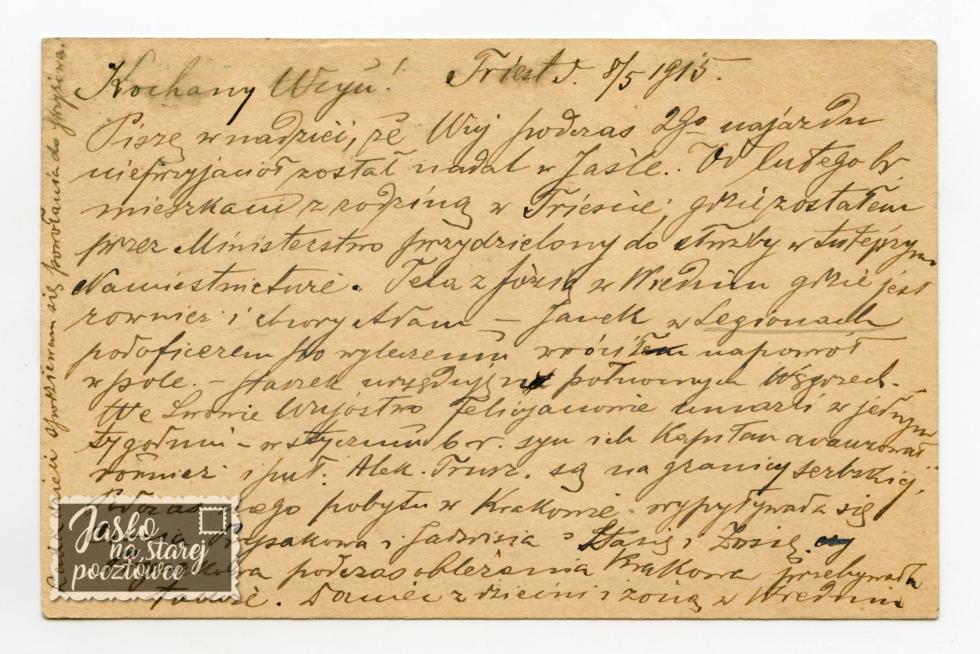 Kochany Wuju! Triest d. 8/5 1915.
Piszę w nadziei, że Wuj podczas 2go najazdu
nieprzyjaciół został nadal w Jaśle. Od lutego br.
mieszkam z rodziną w Trieście, gdzie zostałem
przez Ministerstwo przydzielony do służby w tutejszym
Namiestnictwie. Tela z Józią w Wiedniu gdzie jest
rownież i chory Adam – Janek w Legionach
podoficerem po wyleczeniu wrócił napowrót
w pole. – Staszek urzęduje na północnych Węgrzech.
We Lwowie Wujostwo Felicjanowie umarli w jednym
tygodniu – w styczniu b.r. syn ich Kapitan avanzował
również i puł. Alek. Trusz. są na granicy serbskiej.
Podczas mego pobytu w Krakowie wypytywała się
i Jadwisia o Stasię i Zosię.
podczas oblężenia Krakowa przebywała
z dziećmi i żoną w Wiedniu
spodziewam się powołania do
Jasło
na starej
pocztówce